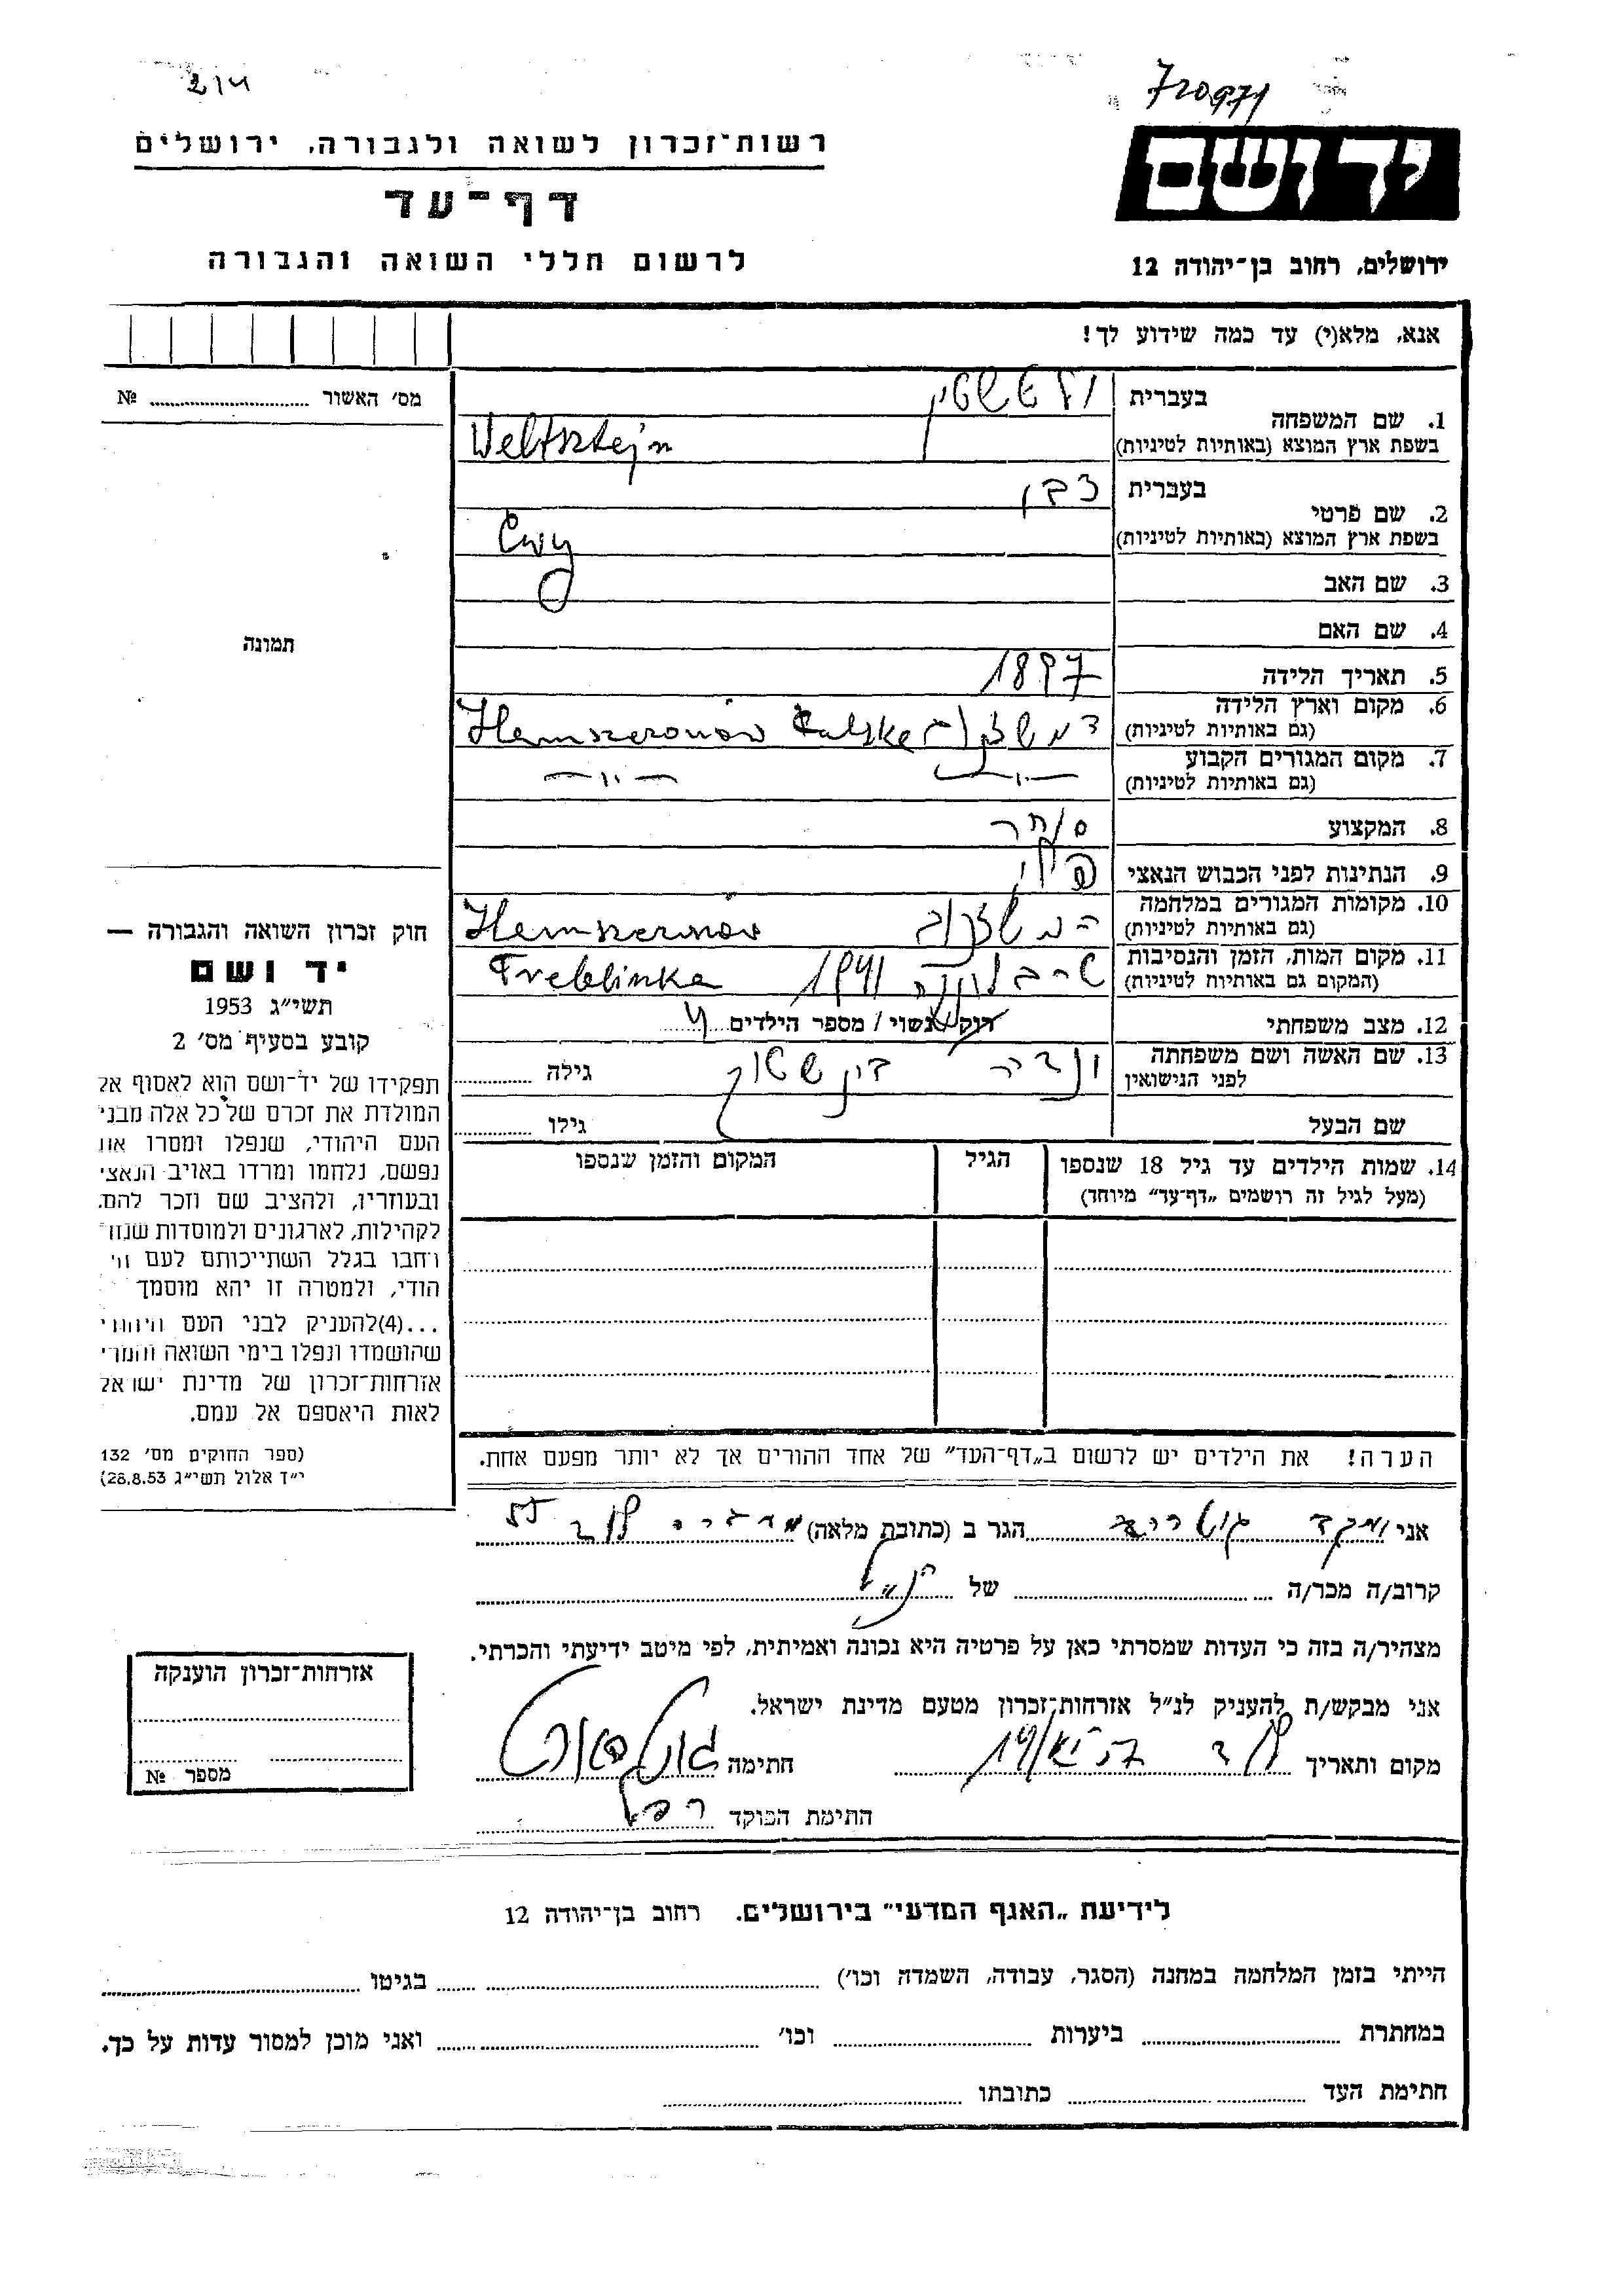 214
720971
רשות־זכרון לשואה ולגבורה, ירושלים
דף־עד
לרשום חללי השואה והגבורה
יד ושם
ירושלים, רחוב בן־יהודה 12
אנא, מלא(י) עד כמה שידוע לך!
מס׳ האשור №
תמונה
1. שם המשפחה
בעברית
בשפת ארץ המוצא (באותיות לטיניות) Weltsztejn
2. שם פרטי
בעברית
בשפת ארץ המוצא (באותיות לטיניות) Cwy
3. שם האב
4. שם האם
5. תאריך הלידה 1897
6. מקום וארץ הלידה
(גם באותיות לטיניות)
7. מקום המגורים הקבוע
(גם באותיות לטיניות) —״— —״—
8. המקצוע סוחר
9. הנתינות לפני הכבוש הנאצי
10. מקומות המגורים במלחמה
(גם באותיות לטיניות)
11. מקום המות, הזמן והנסיבות
(המקום גם באותיות לטיניות) 1941 Treblinka
12. מצב משפחתי רוק/נשוי / מספר הילדים 4
13. שם האשה ושם משפחתה
לפני הנישואין גילה
שם הבעל גילו
14. שמות הילדים עד גיל 18 שנספו
(מעל לגיל זה רושמים „דף־עד״ מיוחד)
הגיל
המקום והזמן שנספו
הערה! את הילדים יש לרשום ב„דף־העד״ של אחד ההורים אך לא יותר מפעם אחת.
חוק זכרון השואה והגבורה —
יד ושם
תשי״ג 1953
קובע בסעיף מס׳ 2
תפקידו של יד־ושם הוא לאסוף אל
המולדת את זכרם של כל אלה מבני
העם היהודי, שנפלו ומסרו את
נפשם, נלחמו ומרדו באויב הנאצי
ובעוזריו, ולהציב שם וזכר להם,
לקהילות, לארגונים ולמוסדות שנח־
רבו בגלל השתייכותם לעם הי־
הודי, ולמטרה זו יהא מוסמך
...(4)להעניק לבני העם היהודי
שהושמדו ונפלו בימי השואה והמרי
אזרחות־זכרון של מדינת ישראל
לאות היאספם אל עמם.
(ספר החוקים מס׳ 132
י״ד אלול תשי״ג 28.8.53)
אני הגר ב (כתובת מלאה)
קרוב/ה מכר/ה של הנ״ל
מצהיר/ה בזה כי העדות שמסרתי כאן על פרטיה היא נכונה ואמיתית, לפי מיטב ידיעתי והכרתי.
אני מבקש/ת להעניק לנ״ל אזרחות־זכרון מטעם מדינת ישראל.
מקום ותאריך חתימה
חתימת הפוקד
אזרחות־זכרון הוענקה
מספר №
לידיעת „האגף המדעי״ בירושלים. רחוב בן־יהודה 12
הייתי בזמן המלחמה במחנה (הסגר, עבודה, השמדה וכו׳) בגיטו
במחתרת ביערות וכו׳ ואני מוכן למסור עדות על כך.
חתימת העד כתובתו